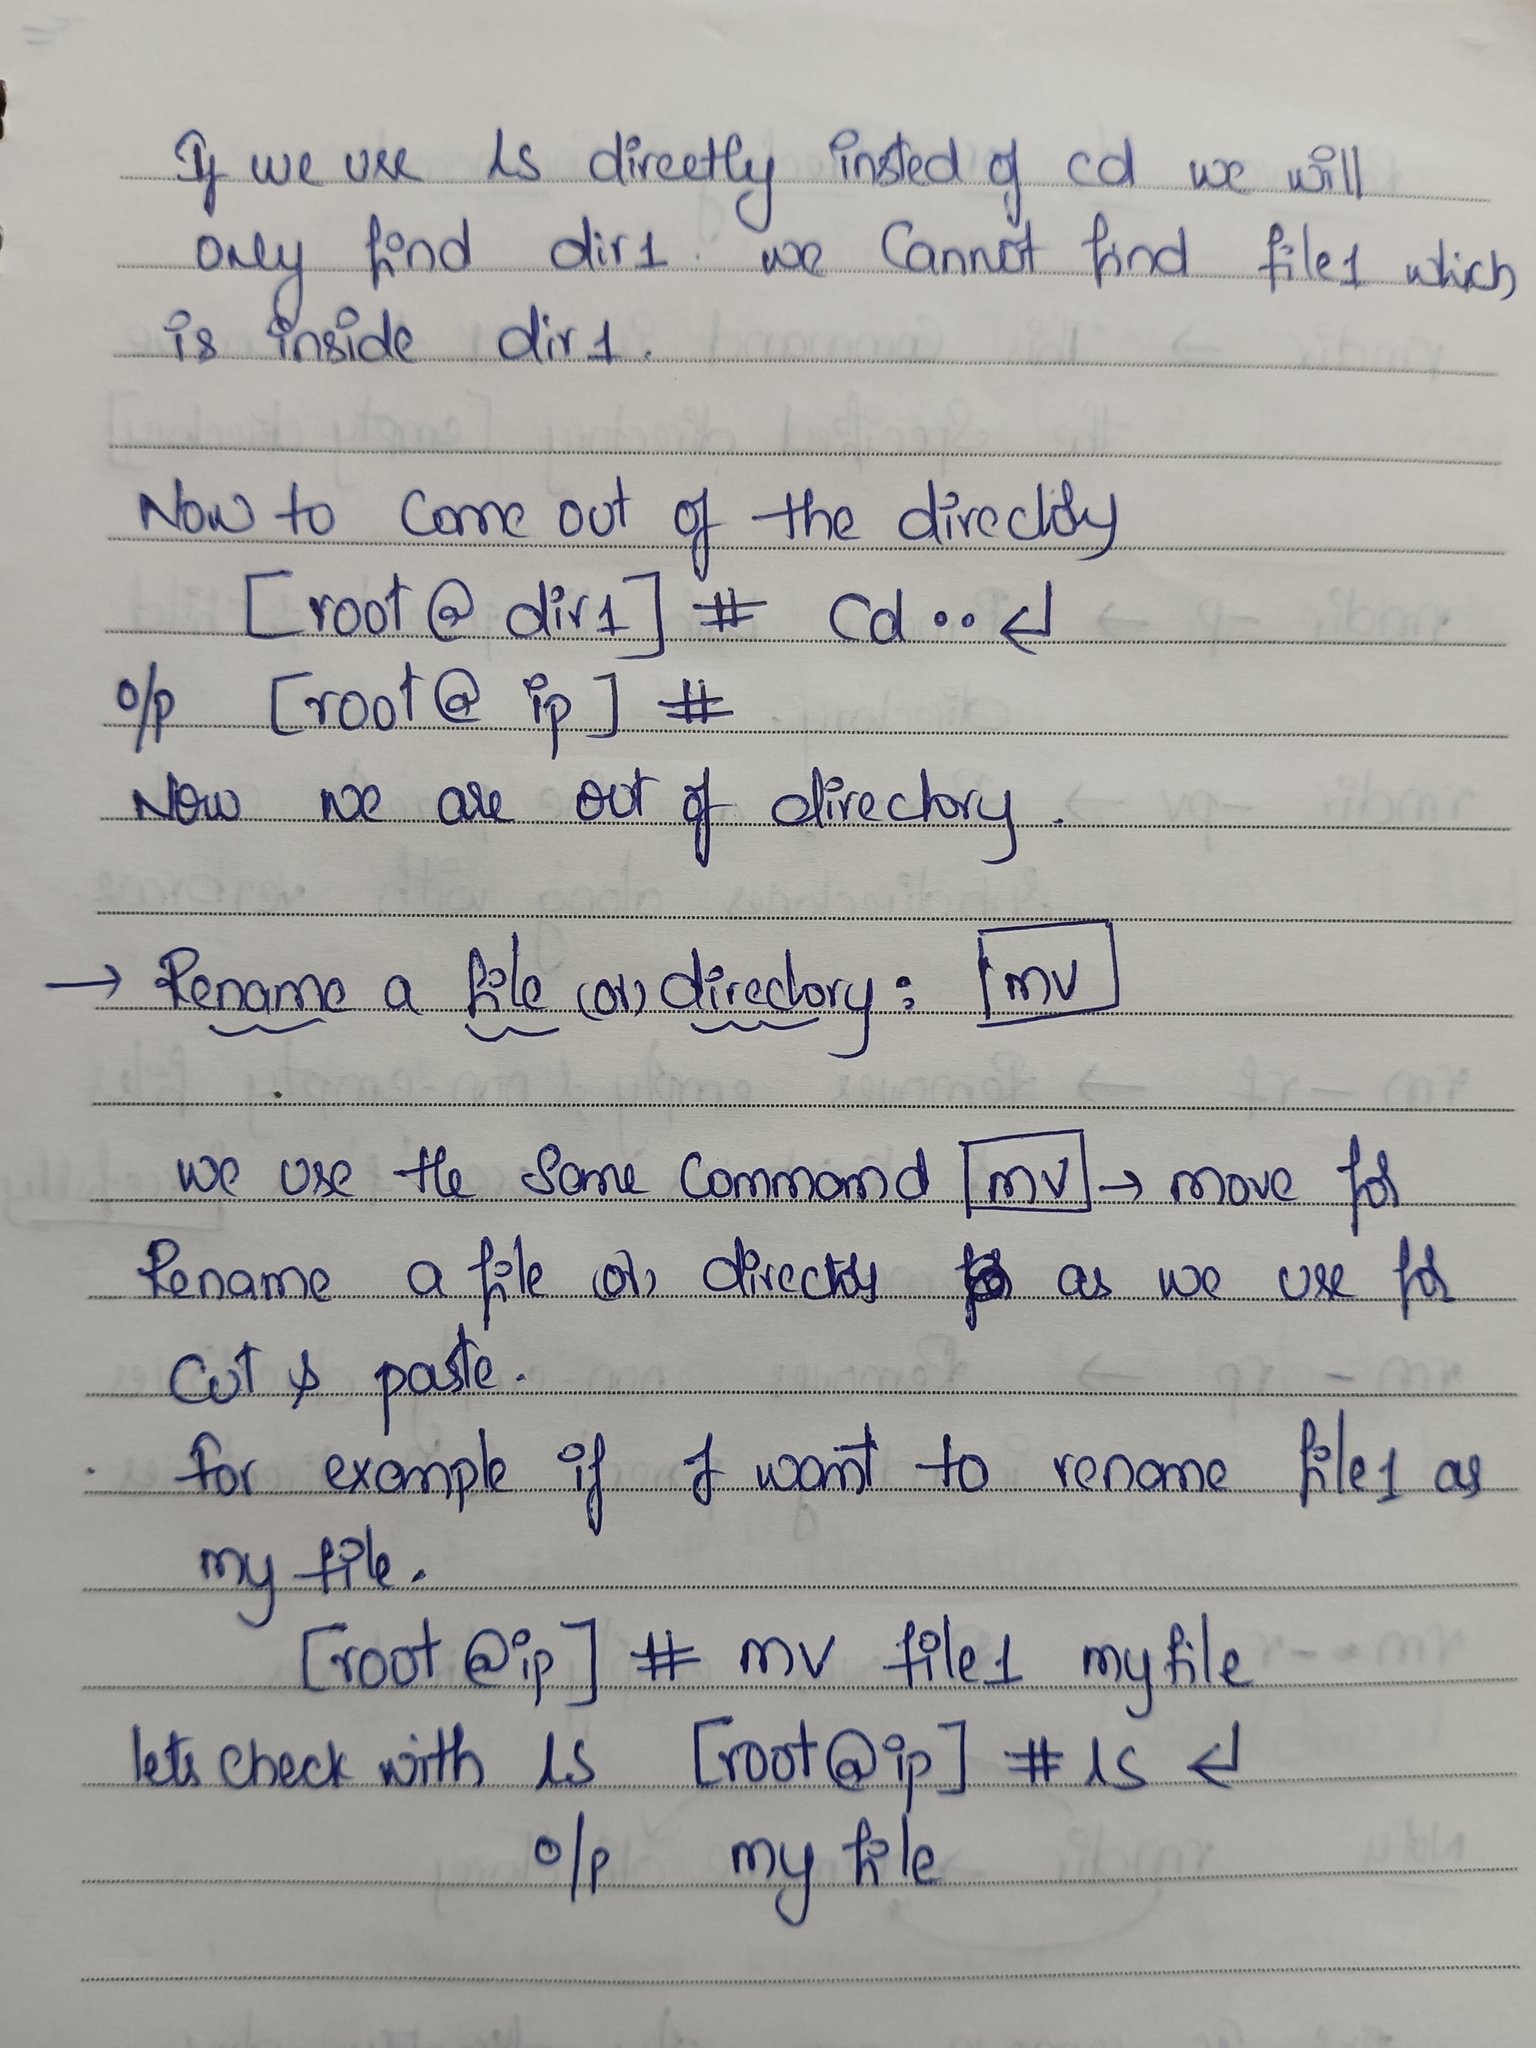 If we use ls directly insted of cd we will
only find dir1. we cannot find file1 which
is inside dir1.
Now to come out of the directory
[root@ dir1] # cd .. ↵
o/p [root@ ip] #
Now we are out of directory.
→ Rename a file (or) directory : mv
we use the same command mv → move for
Rename a file (or) directory as we use for
cut & paste.
. For example if I want to rename file1 as
my file.
[root@ip] # mv file1 myfile
lets check with ls [root@ip] # ls ↵
o/p my file